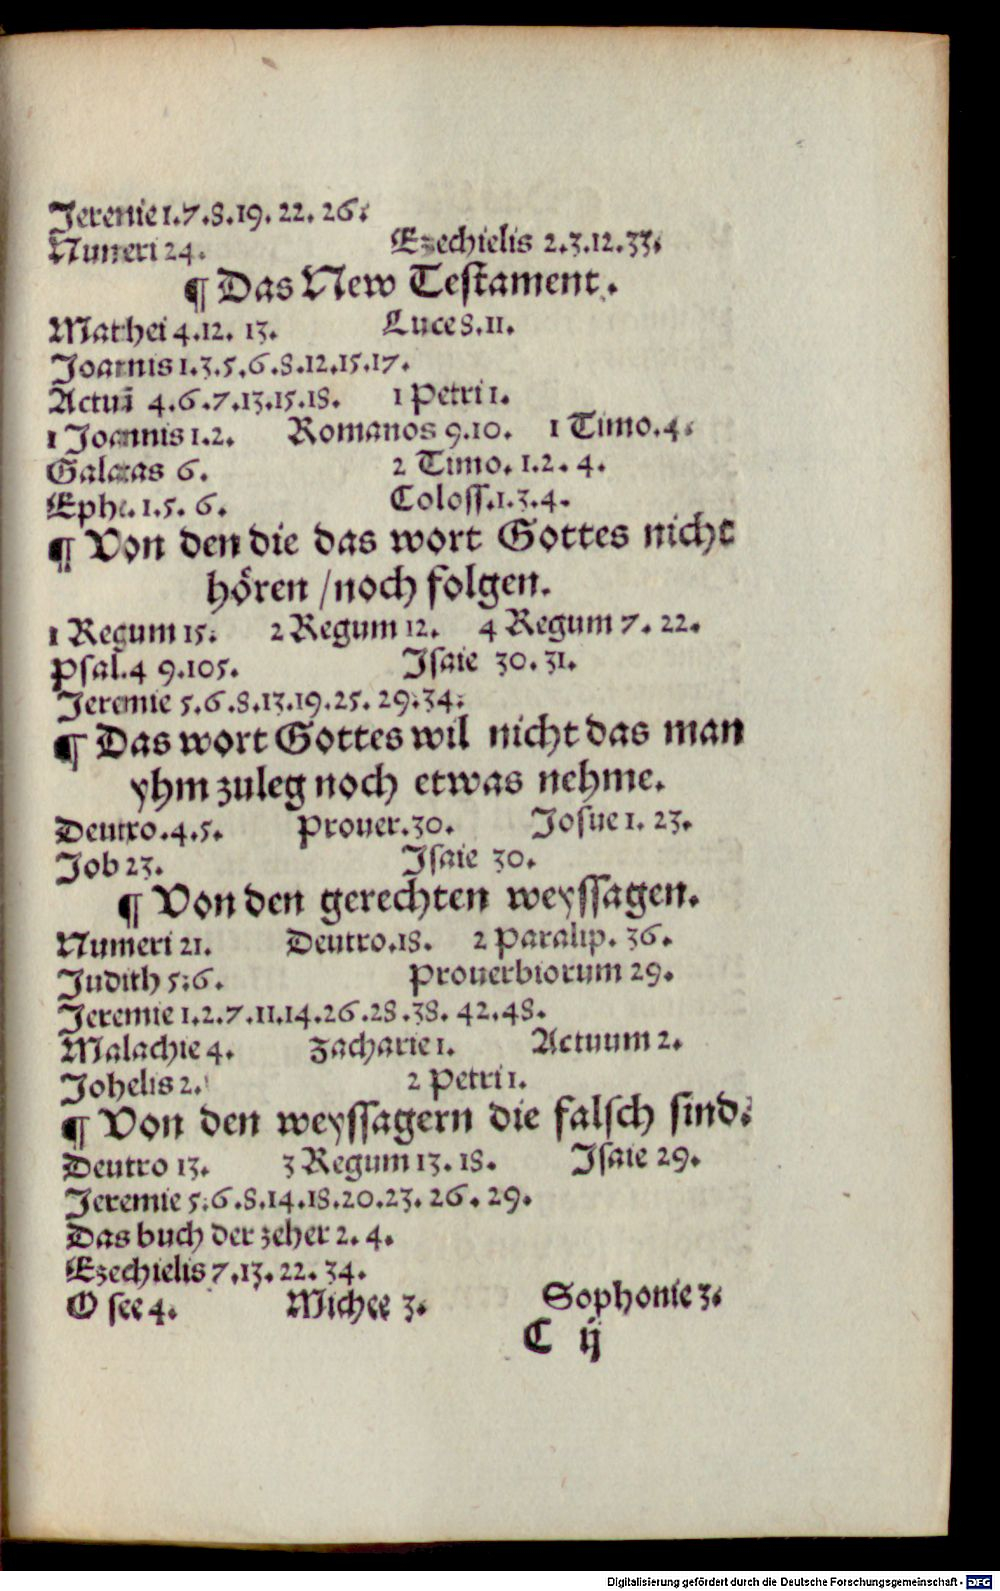 Jeremie 1.7.8.19. 22. 26.
Numeri 24. Ezechielis 2.3.12.33.
¶ Das New Testament.
Mathei 4.12. 13. Luce 8.11.
Joannis 1.3.5.6.8.12.15.17.
Actuū 4.6.7.13.15.18. 1 Petri 1.
1 Joannis 1.2. Romanos 9.10. 1 Timo.4.
Galatas 6. 2 Timo. 1.2. 4.
Ephe. 1.5. 6. Coloss.1.3.4.
¶ Von den die das wort Gottes nicht
hören / noch folgen.
1 Regum 15. 2 Regum 12. 4 Regum 7. 22.
Psal.4 9.105. Isaie 30. 31.
Jeremie 5.6.8.13.19.25. 29.34.
¶ Das wort Gottes wil nicht das man
yhm zuleg noch etwas nehme.
Deutro.4.5. Prouer.30. Josue 1. 23.
Job 23. Isaie 30.
¶ Von den gerechten weyssagen.
Numeri 21. Deutro.18. 2 Paralip. 36.
Judith 5.6. Prouerbiorum 29.
Jeremie 1.2.7.11.14.26.28.38. 42.48.
Malachie 4. Zacharie 1. Actuum 2.
Johelis 2. 2 Petri 1.
¶ Von den weyssagern die falsch sind.
Deutro 13. 3 Regum 13. 18. Isaie 29.
Jeremie 5.6.8.14.18.20.23. 26. 29.
Das buch der zeher 2. 4.
Ezechielis 7.13. 22. 34.
O see 4. Michee 3. Sophonie 3.
C ij
Digitalisierung gefördert durch die Deutsche Forschungsgemeinschaft - DFG